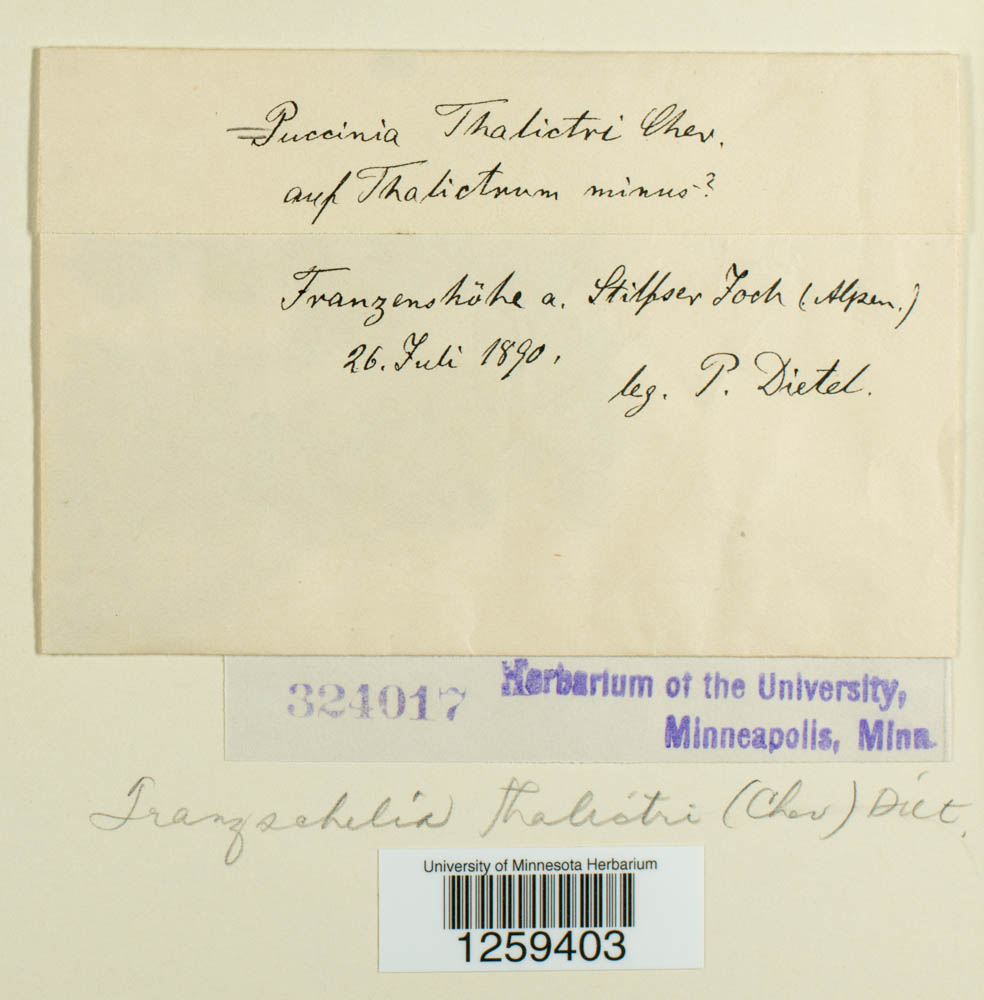 Puccinia Thalictri Chev.
auf Thalictrum minus?
Franzenshöhe a. Stilfser Joch (Alpen.)
26. Juli 1890.
leg. P. Dietel.
324017
Herbarium of the University,
Minneapolis, Minn.
Tranzschelia thalictri (Chev) Diet.
University of Minnesota Herbarium
1259403